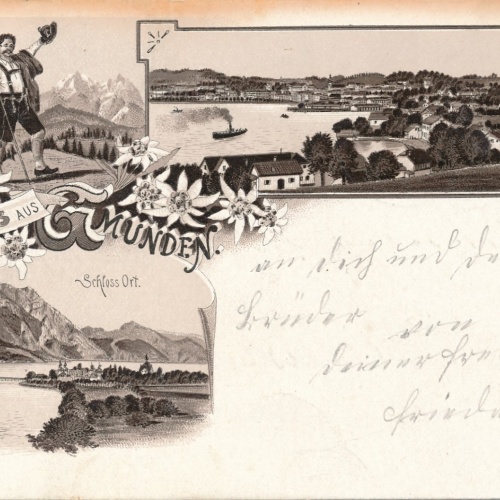 S AUS
GMUNDEN.
Schloss Ort.
an dich und de
Brüder von
deiner Fre
Frieda